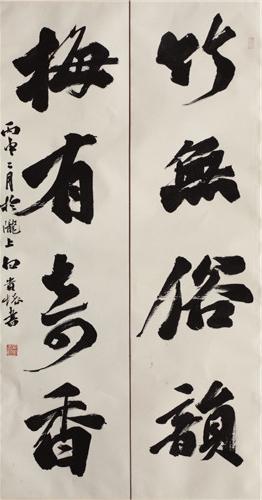 竹無俗韻
梅有奇香
丙申二月於隴上